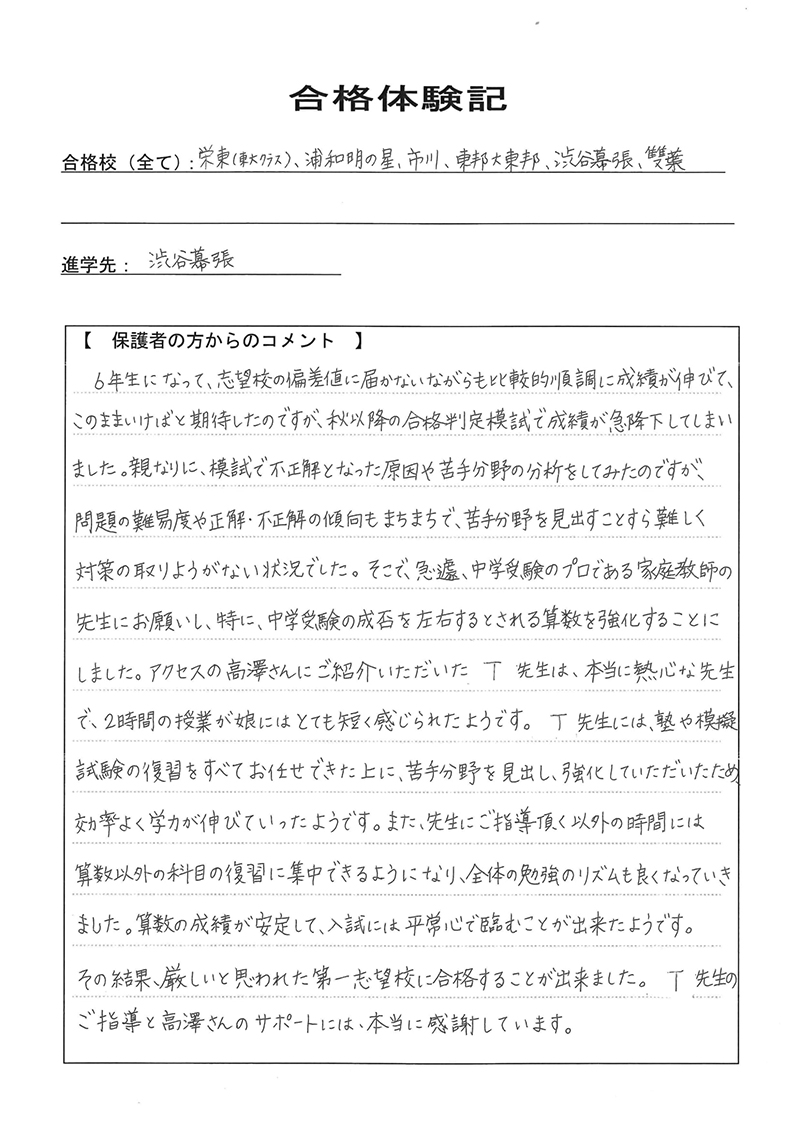 合格体験記
合格校（全て）：栄東（東大クラス）、浦和明の星、市川、東邦大東邦、渋谷幕張、雙葉
進学先： 渋谷幕張
【 保護者の方からのコメント 】
6年生になって、志望校の偏差値に届かないながらも比較的順調に成績が伸びて、
このままいけばと期待したのですが、秋以降の合格判定模試で成績が急降下してしまい
ました。親なりに、模試で不正解となった原因や苦手分野の分析をしてみたのですが、
問題の難易度や正解・不正解の傾向もまちまちで、苦手分野を見出すことすら難しく
対策の取りようがない状況でした。そこで、急遽、中学受験のプロである家庭教師の
先生にお願いし、特に、中学受験の成否を左右するとされる算数を強化することに
しました。アクセスの高澤さんにご紹介いただいた T 先生は、本当に熱心な先生
で、2時間の授業が娘にはとても短く感じられたようです。 T 先生には、塾や模擬
試験の復習をすべてお任せできた上に、苦手分野を見出し、強化していただいたため
効率よく学力が伸びていったようです。また、先生にご指導頂く以外の時間には
算数以外の科目の復習に集中できるようになり、全体の勉強のリズムも良くなっていき
ました。算数の成績が安定して、入試には平常心で臨むことが出来たようです。
その結果、厳しいと思われた第一志望校に合格することが出来ました。 T 先生の
ご指導と高澤さんのサポートには、本当に感謝しています。